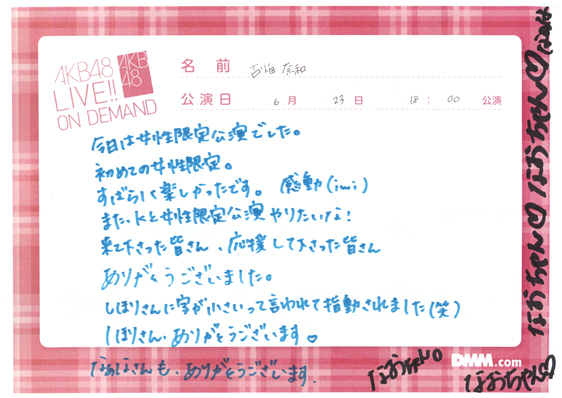 AKB48
LIVE!!
ON DEMAND
AKB
48
名 前 古畑 奈和
公演日 6 月 23 日 18 : 00 公演
今日は女性限定公演でした。
初めての女性限定。
すばらしく楽しかったです。 感動(;w;)
また、Kと女性限定公演やりたいな!
来て下さった皆さん、応援して下さった皆さん
ありがとうございました。
しほりさんに字が小さいって言われて指動されました(笑)
しほりさん、ありがとうございます♥
なぁなさんも、ありがとうございます.
なおちゃん♡
なおちゃん♡
なおちゃん♡
なおちゃん♡
DMM.com